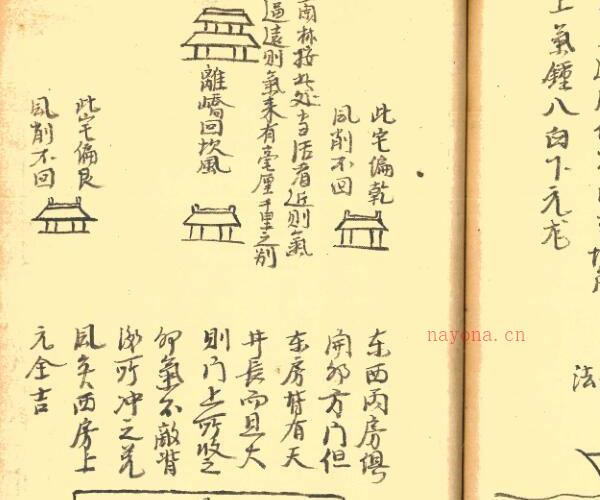 上氣鍾八白下元龙
法
此宅偏乾
風削不回
南林按此处当活看近则氣
逼遠则氣来有毫厘千里之别
離嶠回坎風
此宅偏艮
風削不回
东西丙房俱
開卯方门但
东房背有天
井長而且大
则门上所收之
卯氣不敵背
後所冲之兑
風矣西房上
元全吉
nayona.cn